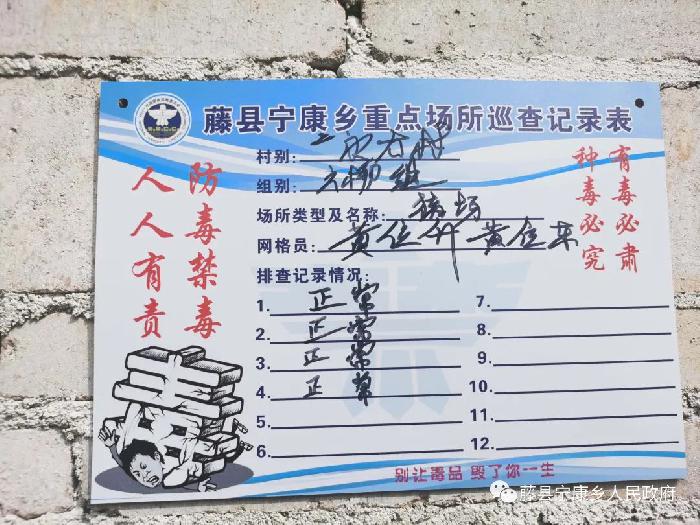 藤县宁康乡重点场所巡查记录表
村别:
组别: 六柳组
场所类型及名称: 猪场
网格员:
排查记录情况:
1. 正常
2. 正常
3. 正常
4. 正常
5.
6.
7.
8.
9.
10.
11.
12.
防毒禁毒
人人有责
有毒必肃
种毒必究
别让毒品 毁了你一生
藤县宁康乡人民政府